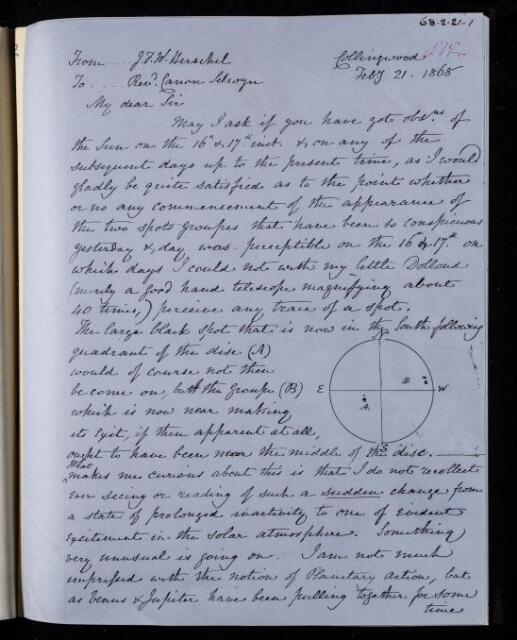 68-2-21-1
From J.F.W. Herschel
Collingwood
To Revd. Canon Selwyn
Feby 21. 1868
My dear Sir
May I ask if you have got obsns of
the Sun on the 16th & 17th inst. & on any of the
subsequent days up to the present time, as I would
gladly be quite satisfied as to the point whether
or no any commencement of the appearance of
the two spots-groupes that have been so conspicuous
yesterday & day was perceptible on the 16th & 17th on
which days I could not with my little Dollond
(merely a good hand telescope magnifying about
40 times,) perceive any trace of a spot.
The large black spot that is now in the South following
quadrant of the disc (A)
would of course not then
be come on, but the Groupe (B)
which is now near making
its Exit, if then apparent at all,
E
W
A
B
S
ought to have been near the middle of the disc. —
What
makes me curious about this is that I do not recollect
ever seeing or reading of such a sudden change from
a state of prolonged inactivity to one of Evident
Excitement in the solar atmosphere. Something
very unusual is going on. I am not much
impressed with the notion of Planetary action, but
as Venus & Jupiter have been pulling together for some
time